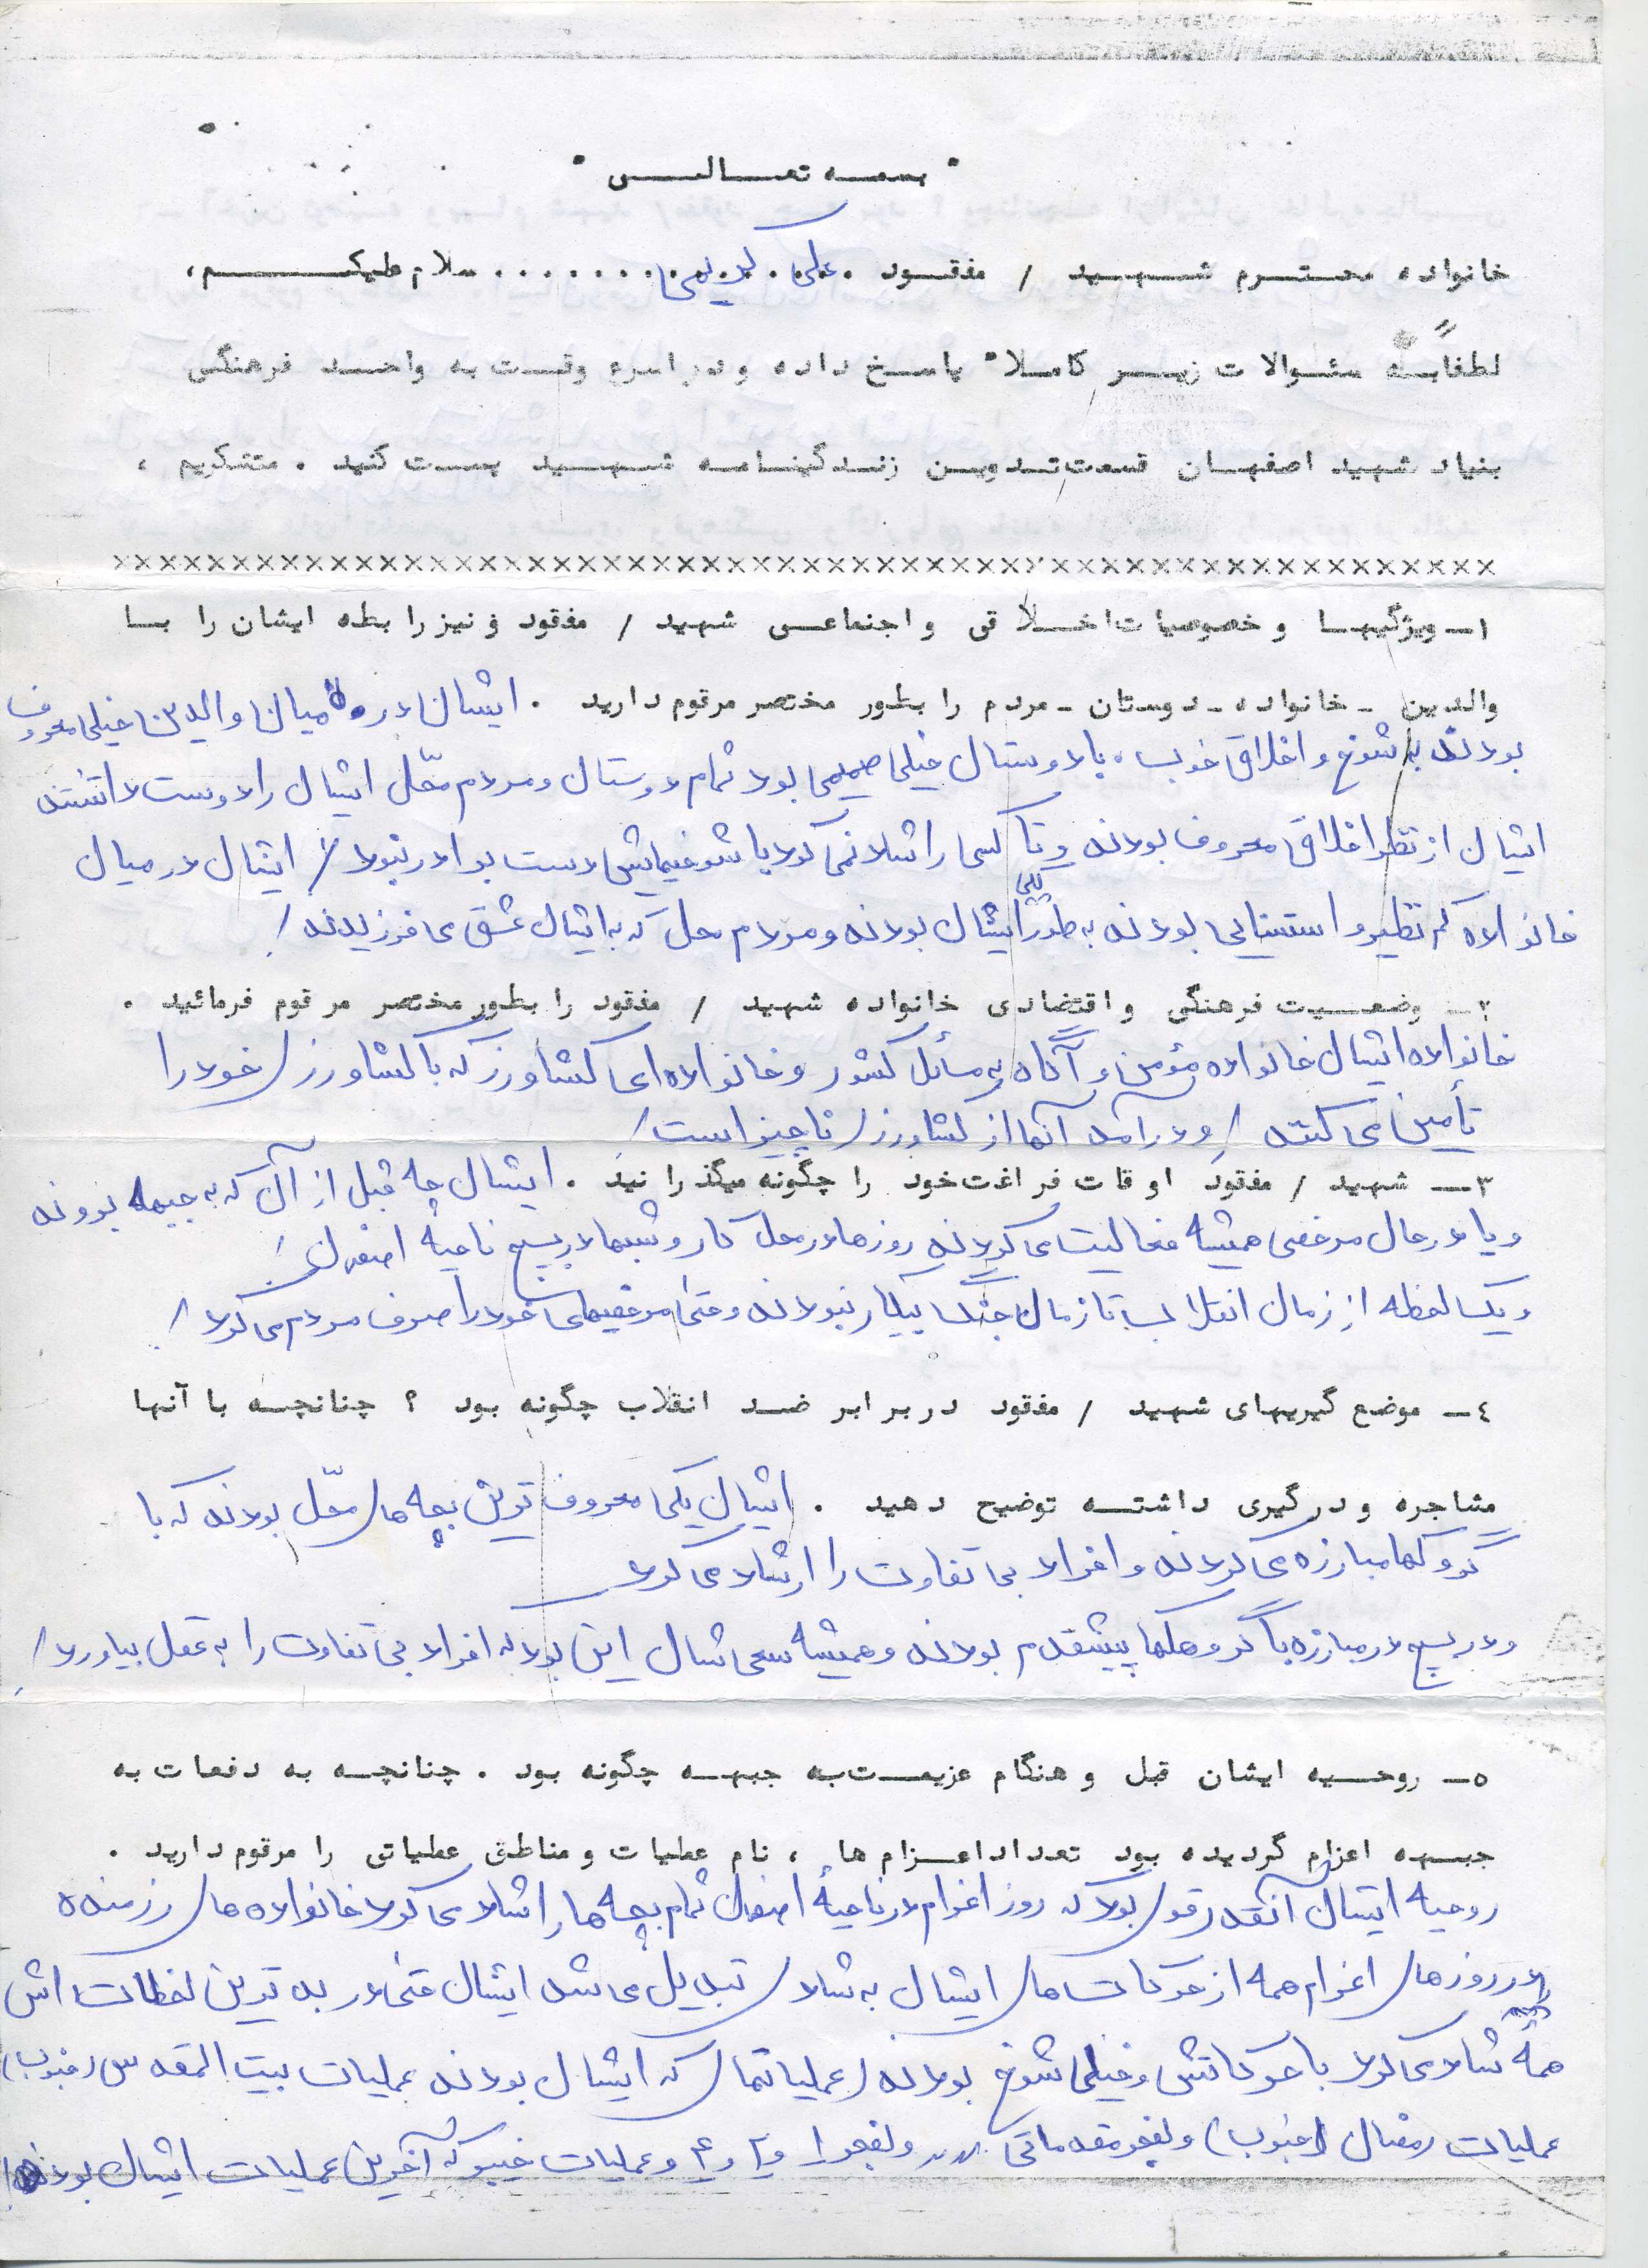 " بسمه تعالی "
خانواده محترم شهید / مفقود . علی کریمی ........ سلام علیکم ،
لطفاً به سئوالات زیر کاملا" پاسخ داده و در اسرع وقت به واحد فرهنگی
بنیاد شهید اصفهان قسمت تدوین زندگینامه شهید پست کنید . متشکریم ،
××××××××××××××××××××××××××××××××××××××××××××××××××××××
۱ــ ویژگیها و خصوصیات اخلاقی و اجتماعی شهید / مفقود و نیز رابطه ایشان را با
والدین ـ خانواده ـ دوستان ـ مردم را بطور مختصر مرقوم دارید . ایشان در میان والدین خیلی معروف
بودند به شوخ و اخلاق خوب ، با دوستان خیلی صمیمی بود تمام دوستان و مردم محّل ایشان را دوست داشتند
ایشان از نظر اخلاق معروف بودند و تا کسی را شاد نمی کرد با شوخیهایش دست بردار نبود / ایشان در میان
خانواده کم نظیر و استثنایی بودند به طور ایشان بودند و مردم محل که به ایشان عشق می ورزیدند /
۲ــ وضعیت فرهنگی و اقتصادی خانواده شهید / مفقود را بطور مختصر مرقوم فرمائید .
خانواده ایشان خانواده مؤمن و آگاه به مسائل کشور و خانواده ای کشاورز که با کشاورزی خود را
تأمین می کنند / و درآمد آنها از کشاورزی ناچیز است /
۳ــ شهید / مفقود اوقات فراغت خود را چگونه میگذرانید . ایشان چه قبل از آن که به جبهه بروند
و یا در حال مرخصی همیشه فعالیت می کردند روزها در محل کار و شبها در بسیج ناحیه اصفهان /
و یک لحظه از زمان انقلاب تا زمان جنگ بیکار نبودند و حتی مرخصیهای خود را صرف مردم می کرد /
٤ــ موضع گیریهای شهید / مفقود در برابر ضد انقلاب چگونه بود ؟ چنانچه با آنها
مشاجره و درگیری داشته توضیح دهید . ایشان یکی معروف ترین بچه های محّل بودند که با
گروکها مبارزه می کردند و افراد بی تفاوت را ارشاد می کرد
و در بسیج در مبارزه با گروهکها پیشقدم بودند و همیشه سعی شان این بود که افراد بی تفاوت را به عقل بیاورد /
۵ــ روحیه ایشان قبل و هنگام عزیمت به جبهه چگونه بود . چنانچه به دفعات به
جبهه اعزام گردیده بود تعداد اعزام ها ، نام عملیات و مناطق عملیاتی را مرقوم دارید .
روحیه ایشان آنقدر قوی بود که روز اغزام در ناحیهٔ اصفهان تمام بچه ها را شاد می کرد خانواده های رزمنده
در روزهای اغزام همه از حرکات های ایشان به شادی تبدیل می شد ایشان حتی در بدترین لحظات اش
همهٔ شاد می کرد با حرکاتش و خیلی شوخ بودند (عملیاتهای که ایشان بودند عملیات بیت المقدس (جنوب)
عملیات رمضان (جنوب) ولفجر مقدماتی ,, ,, ولفجر ۱ و ۲ و ۴ و عملیات خیبر که آخرین عملیات ایشان بودند